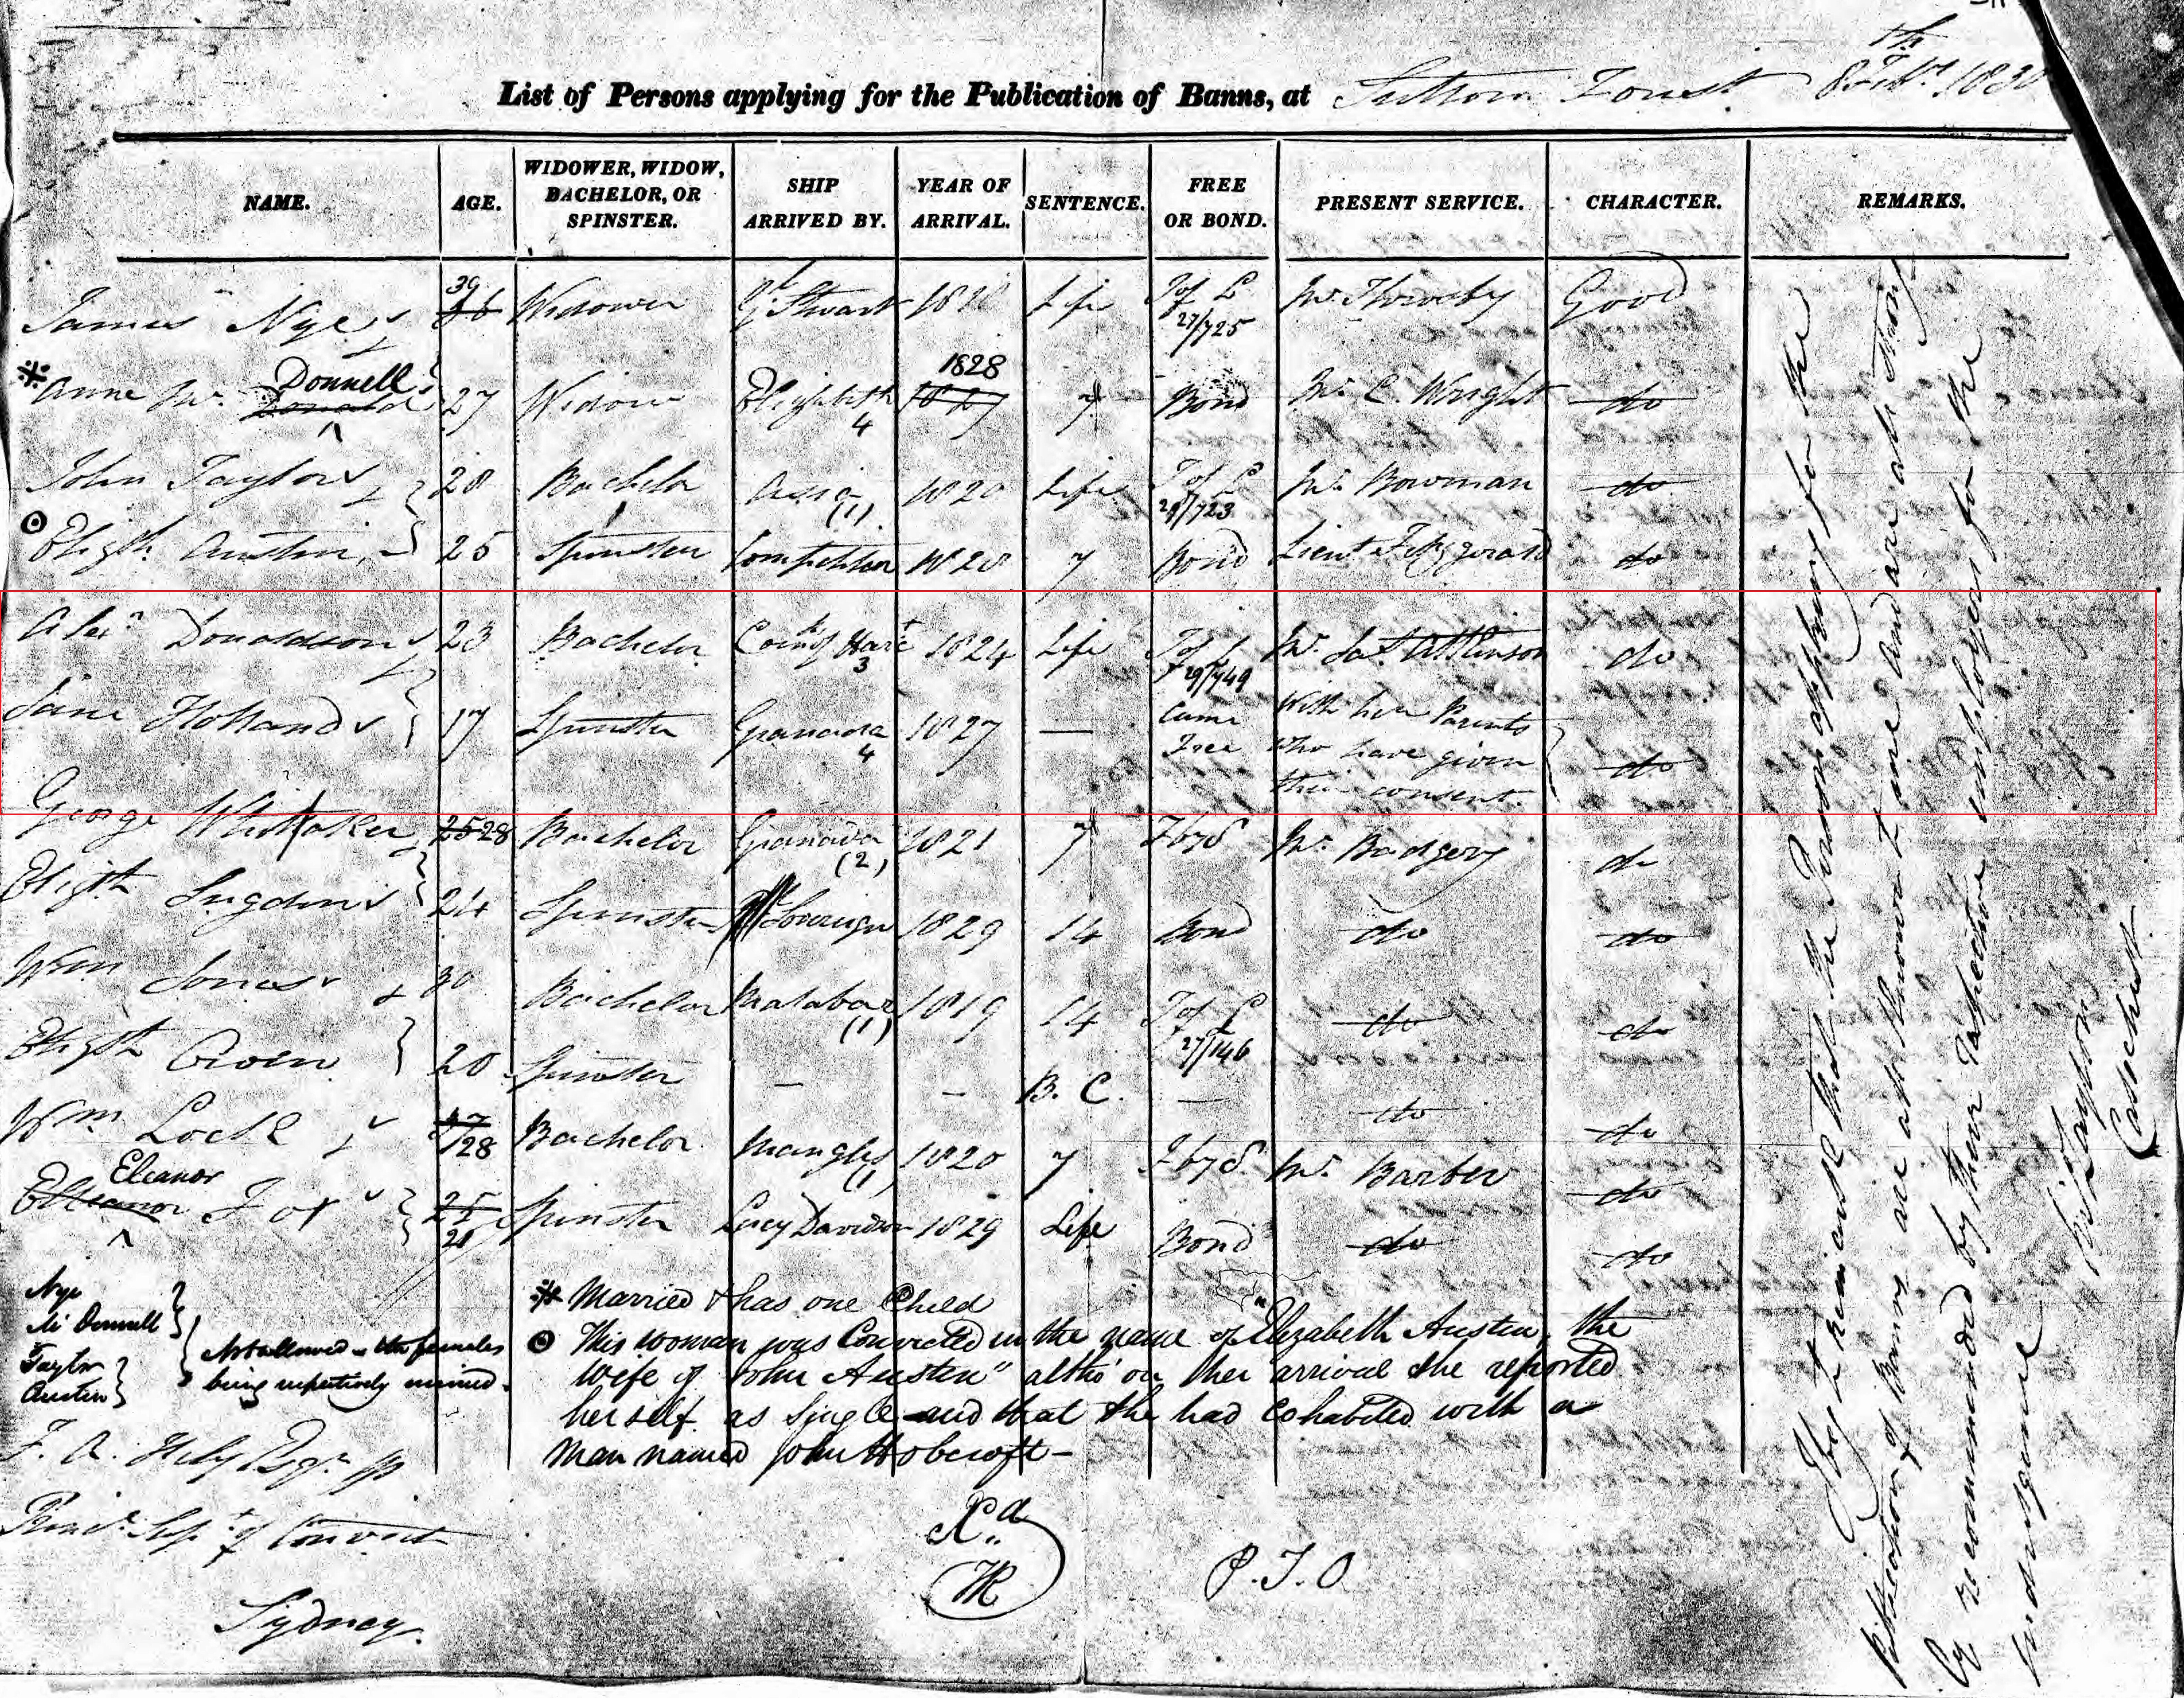 List of Persons applying for the Publication of Banns, at Sutton Forest 8th Feby 1830
NAME. AGE. WIDOWER, WIDOW, BACHELOR, OR SPINSTER. SHIP ARRIVED BY. YEAR OF ARRIVAL. SENTENCE. FREE OR BOND. PRESENT SERVICE. CHARACTER. REMARKS.
James Nye 39 36 Widower Gl Stewart 1818 Life T of L 27/725 Mr Throsby Good
* Anne Mc Donnell Donald 27 Widow Elizabeth 4 1828 1827 7 Bond Mr C. Wright do
John Taylor 28 Bachelor Asia (1) 1820 Life T of L 29/723 Mr Bowman do
⊙ Elizth Austin 25 Spinster Competitor 1828 7 Bond Lieut Fitzgerald do
Alexr Donaldson 23 Bachelor Coun of Harct 3 1824 Life T of L 29/749 Mr Jas Atkinson do
Jane Holland 17 Spinster Granada 4 1827 — Came Free With her Parents who have given their consent. do
George Whittaker 25 28 Bachelor Granada (2) 1821 7 F by S Mr Badgery do
Elizth Sugden 24 Spinster Sovereign 1829 14 Bond do do
Wm Jones 30 Bachelor Malabar (1) 1819 14 T of L 27/146 do do
Elizth Owen 20 Spinster — — B. C. — do do
Wm Lock 28 Bachelor Mangles (1) 1820 7 F by S Mr Barber do
Eleanor Eleanor Fox 25 21 Spinster Lucy Davidson 1829 Life Bond do do
I beg to remark that the Persons applying for the
Publication of Banns are all known to me and are all strongly
recommended by their respective employers for the
indulgence
Catechist
Nye
Mc Donnell
Taylor
Austin
Not allowed – the females
being respectively married.
* Married & has one Child
⊙ This woman was Convicted in the name of "Elizabeth Austen, the
wife of John Austen" altho' on her arrival she reported
herself as single and that she had cohabited with a
man named John Hobcroft –
F. A. Hely Esqr JP
Princl Supt of Convict
Sydney
Xd
TR
P.T.O